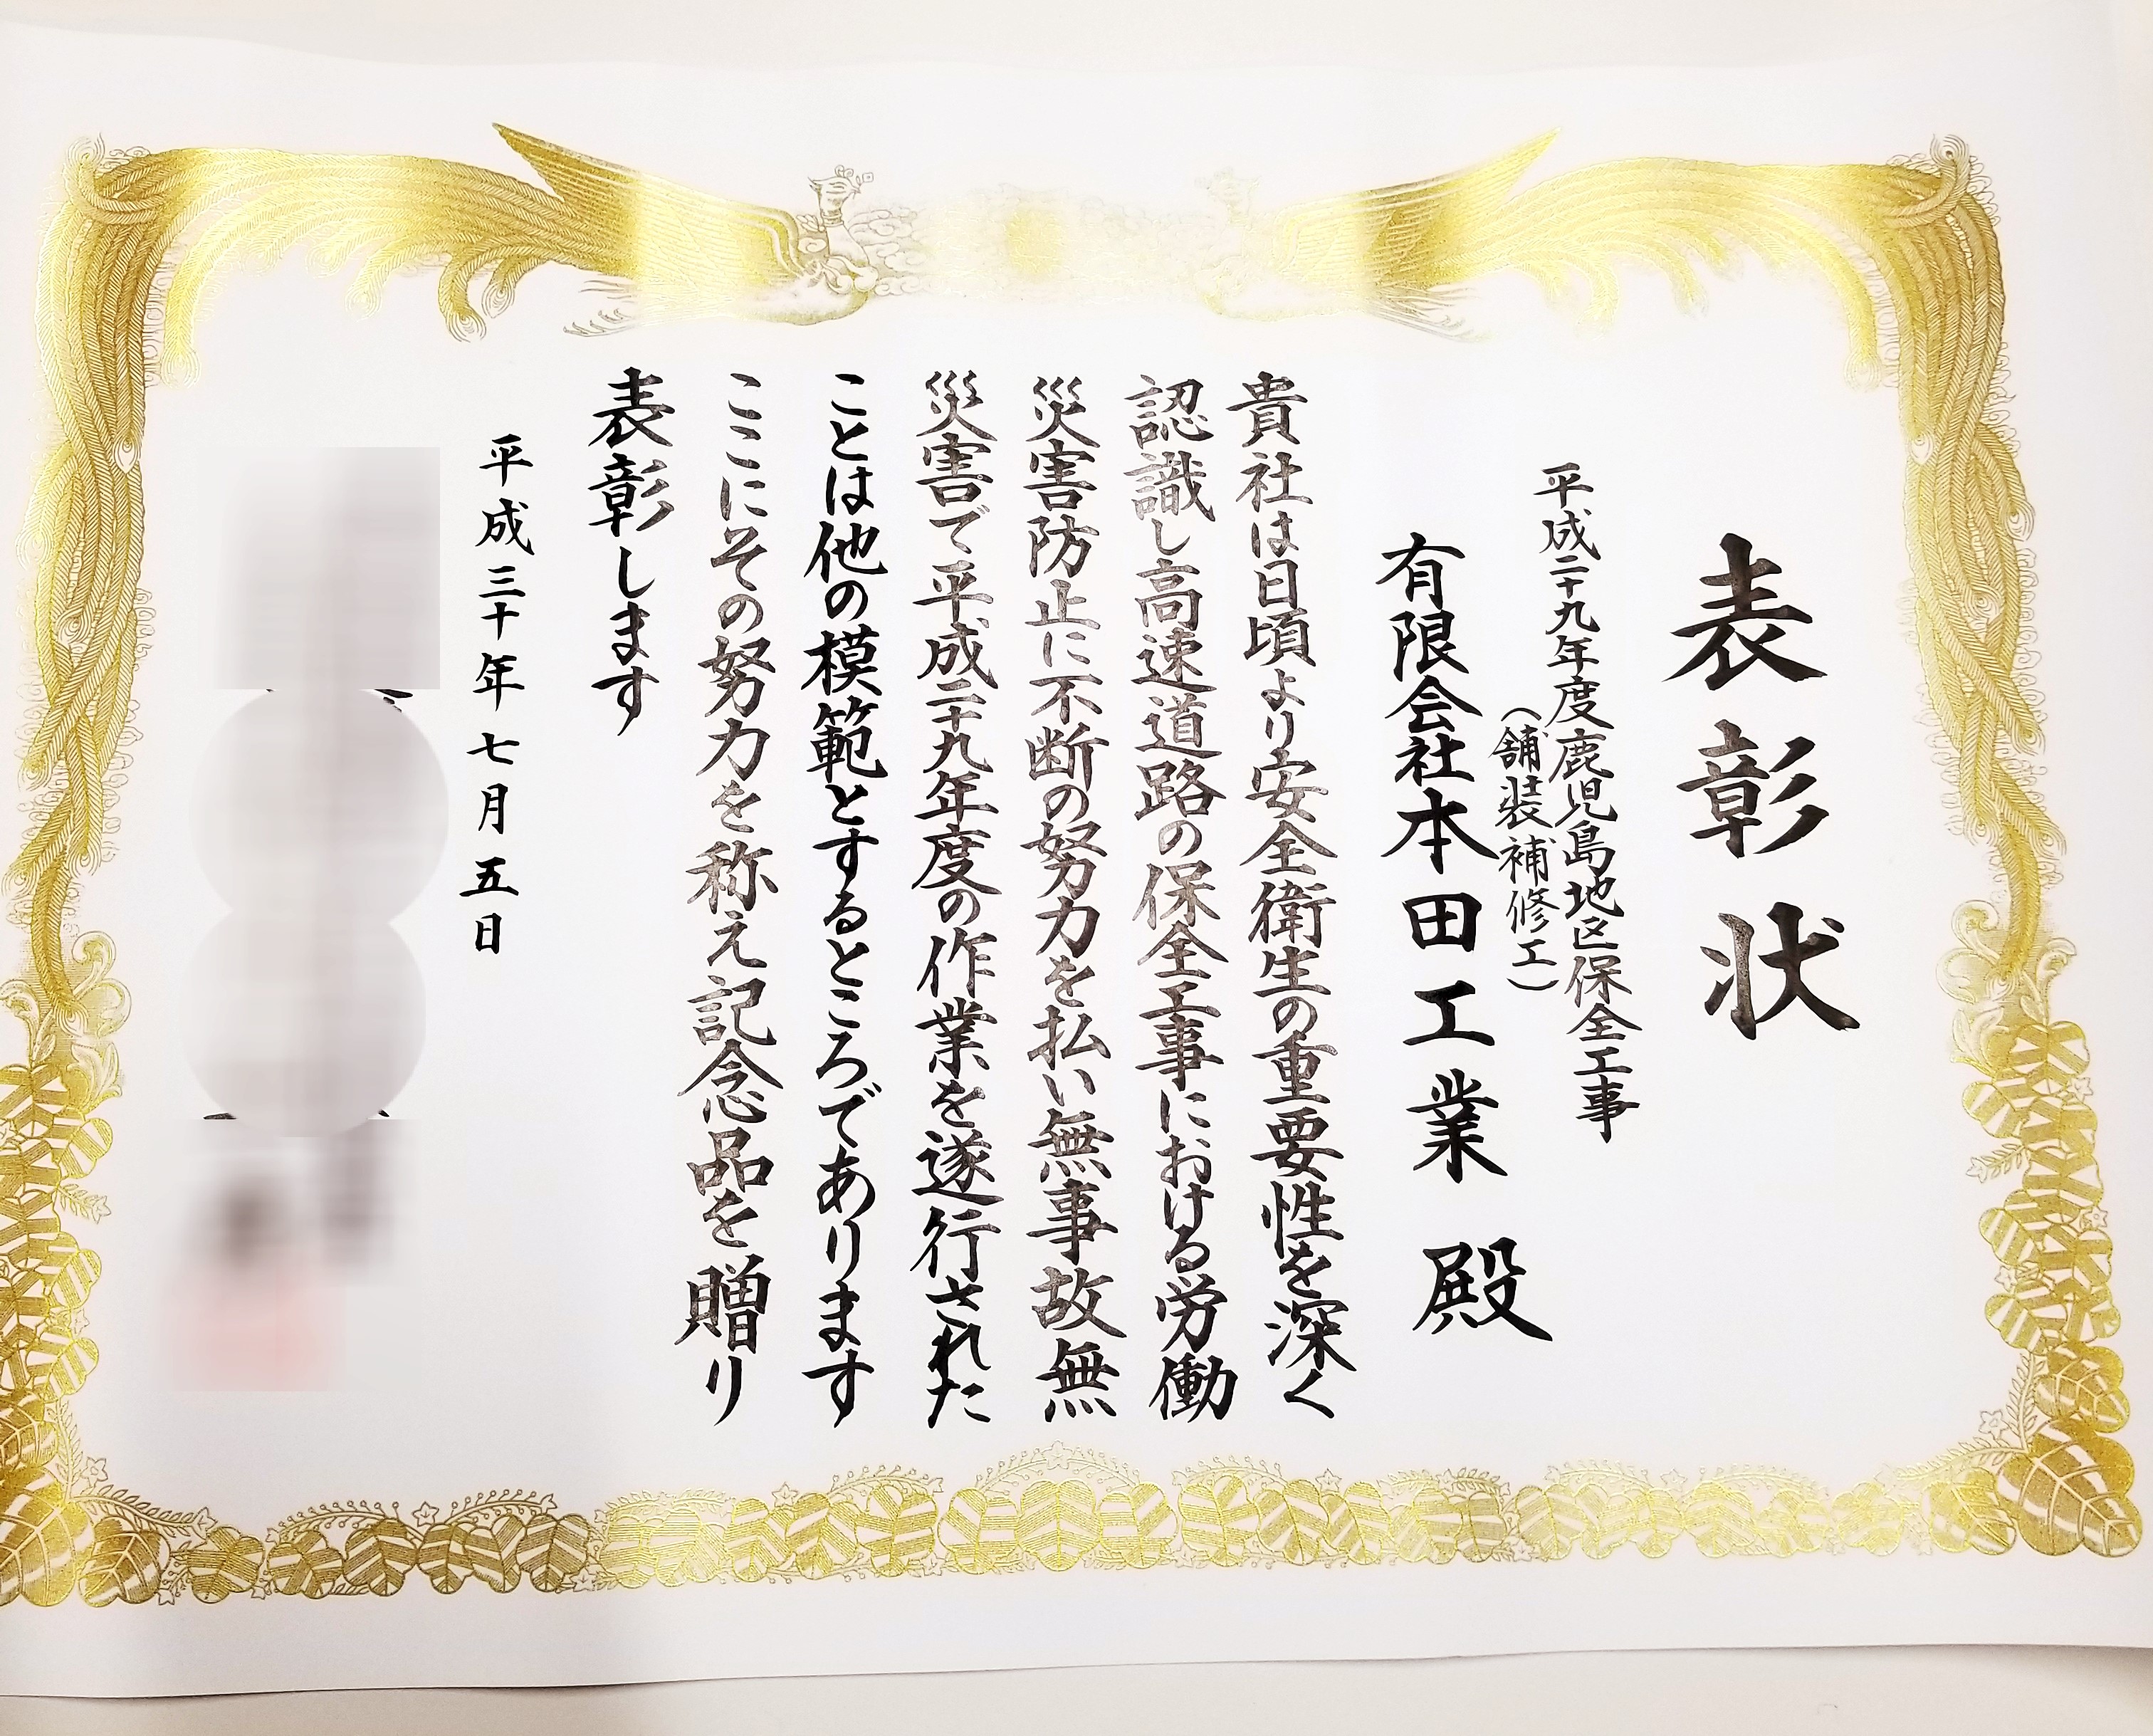 表彰状
平成二十九年度鹿児島地区保全工事
(舗装補修工)
有限会社本田工業 殿
貴社は日頃より安全衛生の重要性を深く
認識し高速道路の保全工事における労働
災害防止に不断の努力を払い無事故無
災害で平成二十九年度の作業を遂行された
ことは他の模範とするところであります
ここにその努力を称え記念品を贈り
表彰します
平成三十年七月五日